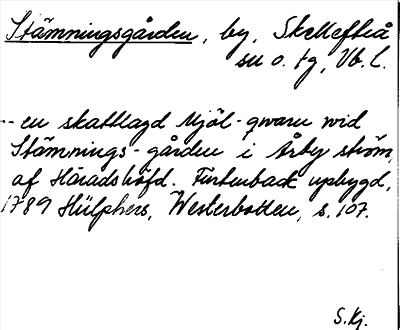 Stämningsgården, by, Skellefteå
sn o. tg, Vb. l.
-- en skattlagd Mjöl-qwarn wid
Stämnings-gården i Åby ström,
af Häradshöfd. Furtenback upbygd,
1789 Hülphers, Westerbotten, s. 107.
S. Kj.